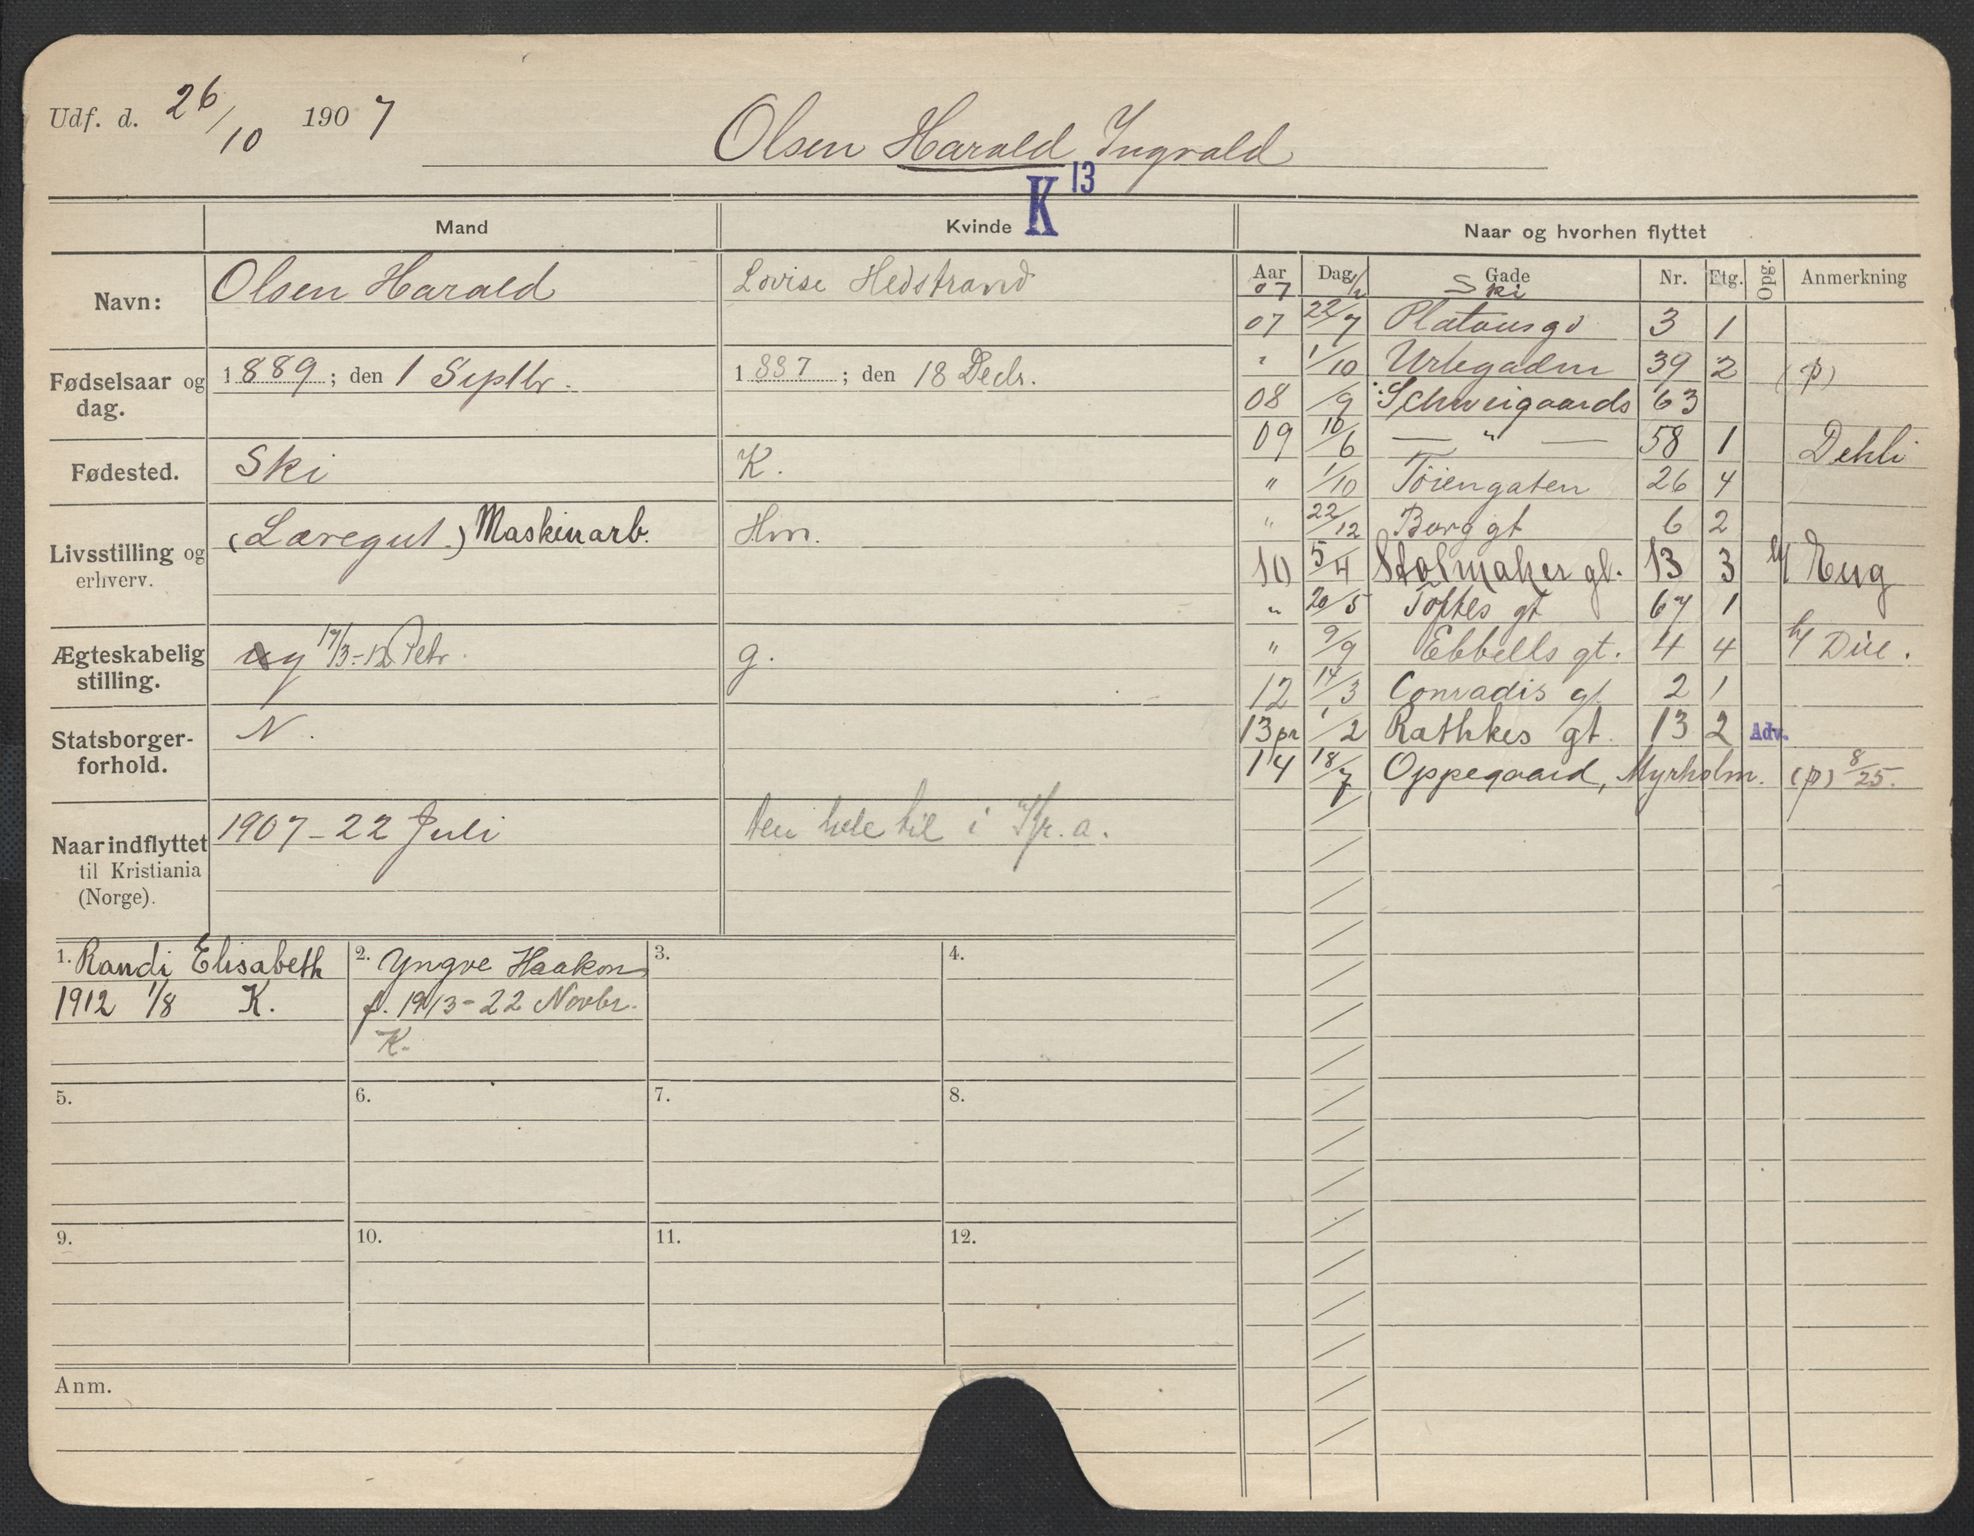 Udf. d. 26/10 1907
Olsen Harald Ingvald
K 13
Mand Kvinde Naar og hvorhen flyttet
Navn: Olsen Harald Lovise Hedstrand
Fødselsaar og dag. 1889; den 1 Septbr. 1887; den 18 Decbr.
Fødested. Ski K.
Livsstilling og erhverv. (Læregut.) Maskinarb. Hm.
Ægteskabelig stilling. ug 17/3-12 Petr. g.
Statsborgerforhold. N.
Naar indflyttet til Kristiania (Norge). 1907 - 22 Juli
1. Randi Elisabeth
1912 1/8 K.
2. Yngve Haakon
f. 1913 - 22 Novbr.
K.
3.
4.
5.
6.
7.
8.
9.
10.
11.
12.
Anm.
Aar Dag Gade Nr. Etg. Opg. Anmerkning
07 Ski
07 22/7 Platousgd 3 1
" 1/10 Urtegaden 39 2 (p)
08 /9 Schweigaards 63
09 10/6 — " — 58 1 Dehli
" 1/10 Tøiengaten 26 4
" 22/12 Borg gt 6 2
10 5/4 Stolmaker gt. 13 3 h/ Eug
" 20/5 Toftes gt 67 1
" 9/9 Ebbells gt. 4 4 h/ Due.
12 14/3 Conradis gt. 2 1
13 pr 1/2 Rathkes gt. 13 2 Adv.
14 18/7 Oppegaard, Myrholm. (p) 8/25.